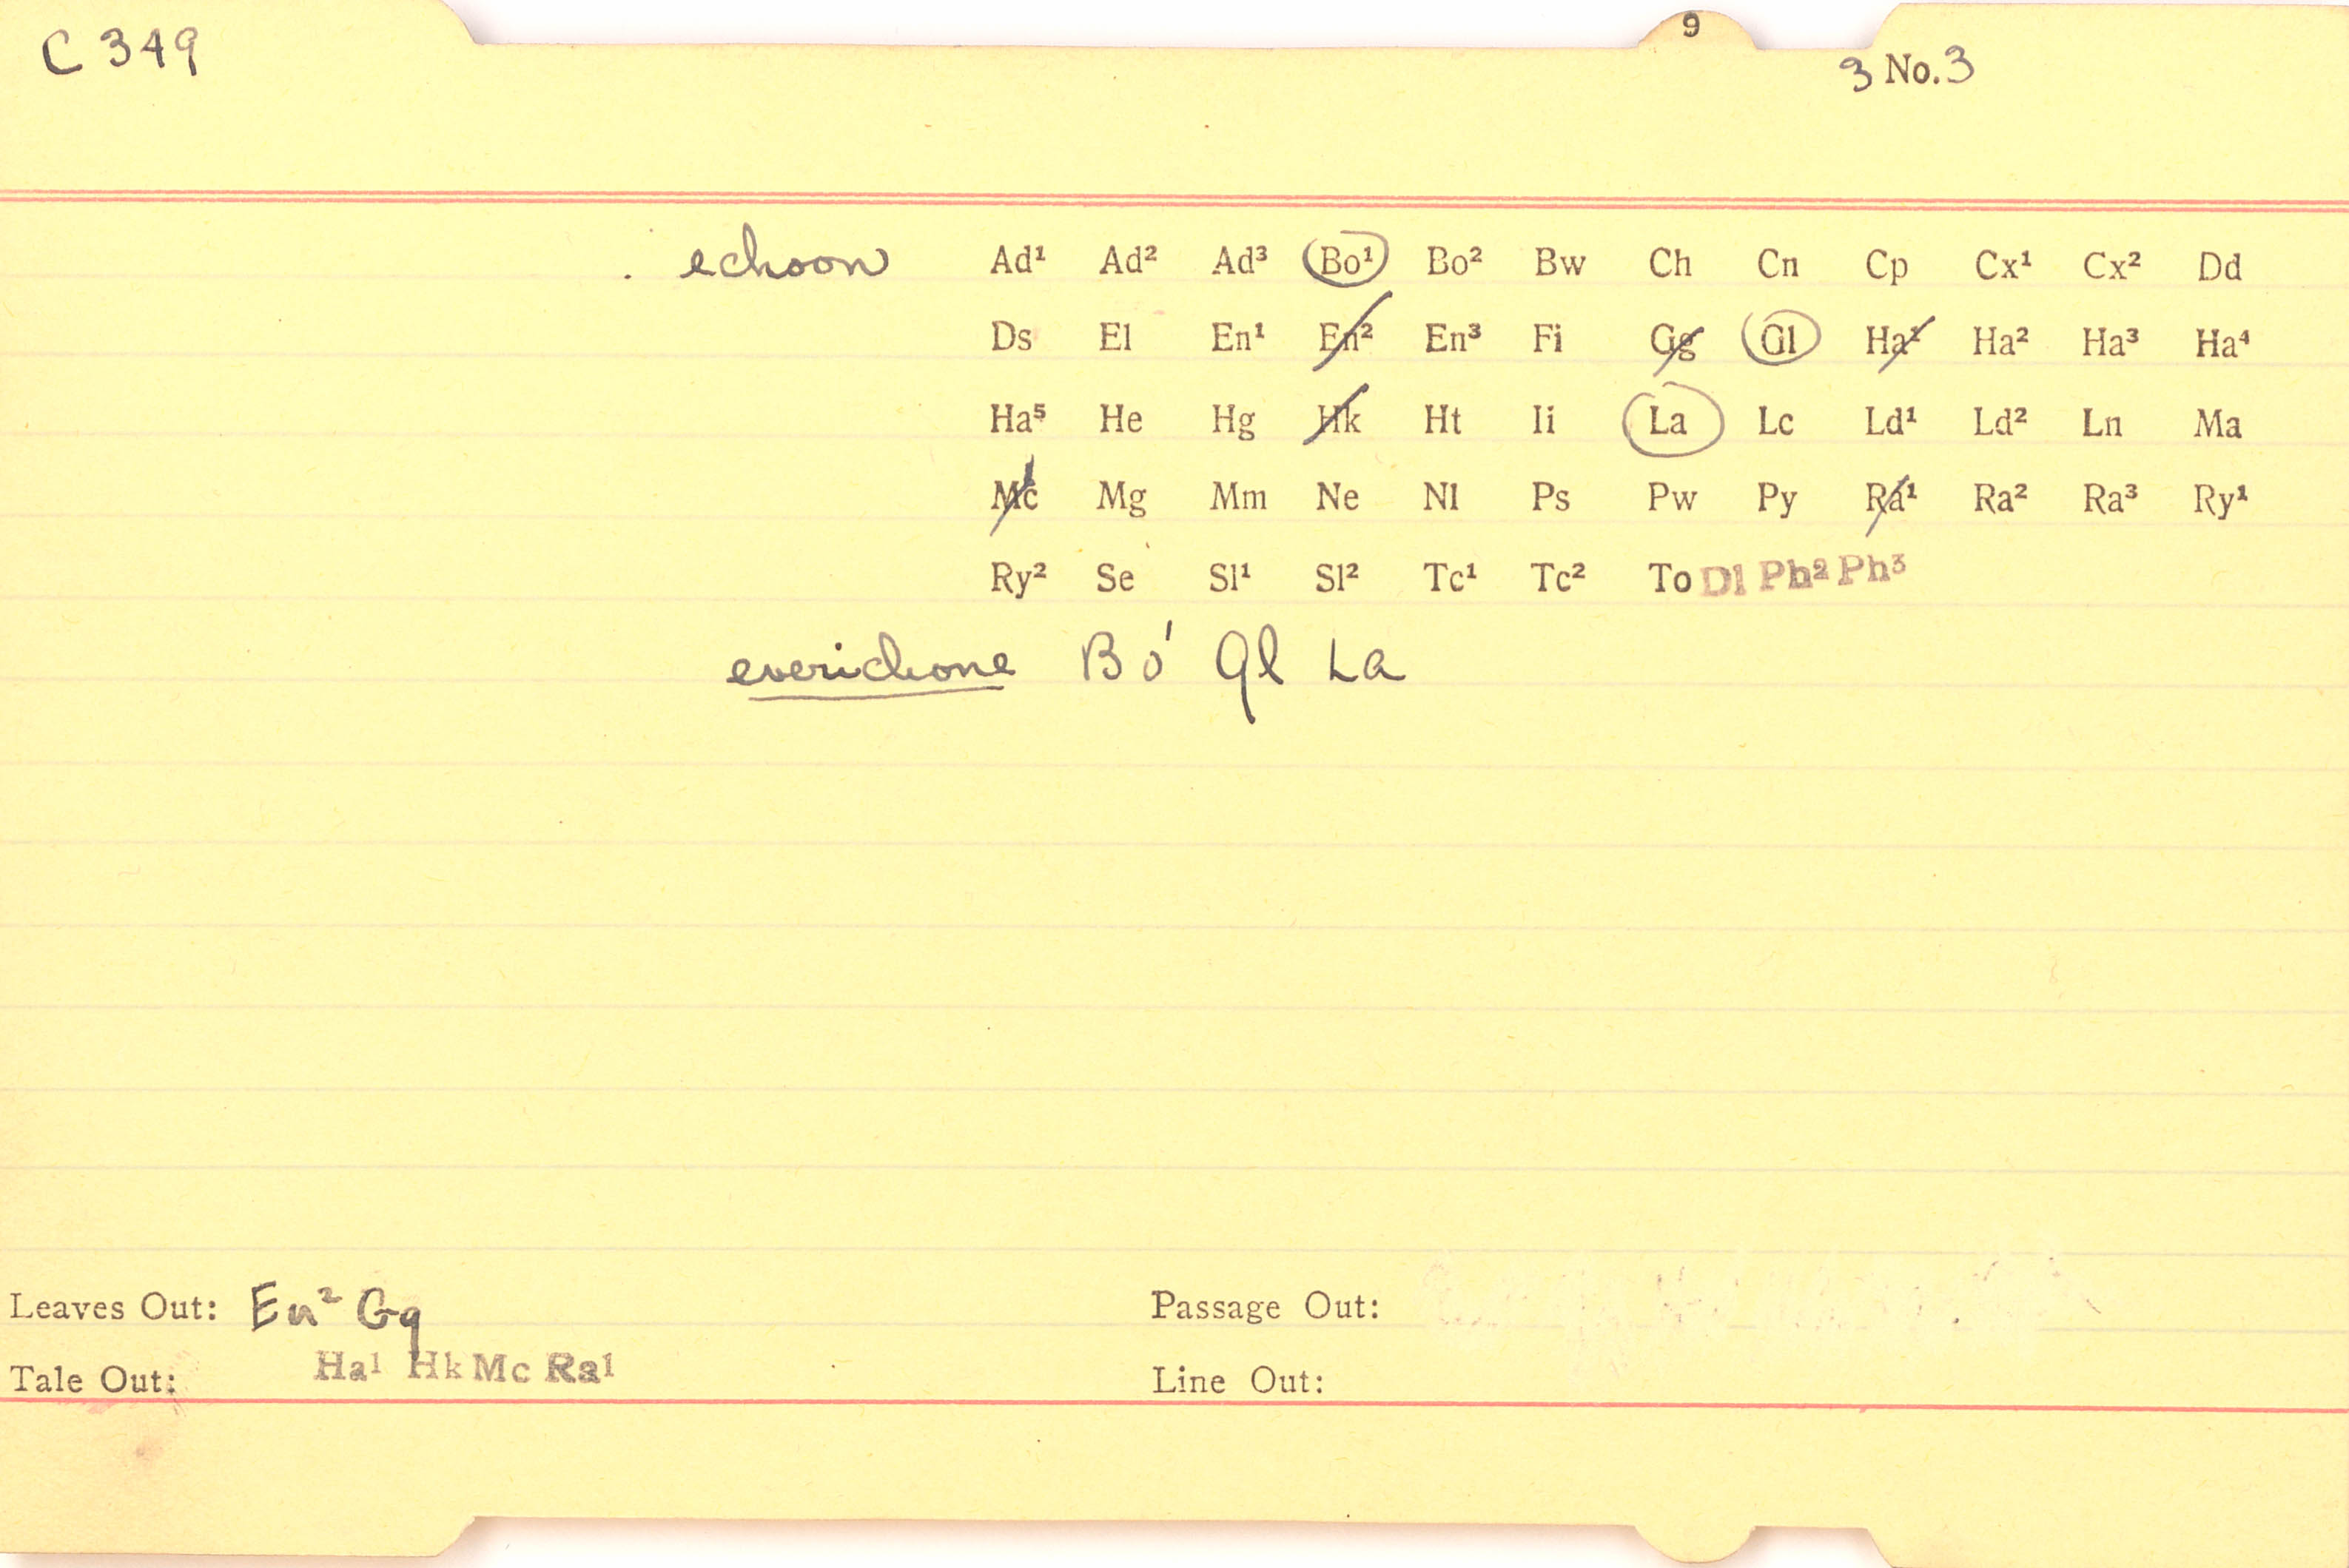 C 349
9
3 No. 3
echoon Ad¹ Ad² Ad³ Bo¹ Bo² Bw Ch Cn Cp Cx¹ Cx² Dd
Ds El En¹ En² En³ Fi Gg Gl Ha¹ Ha² Ha³ Ha⁴
Ha⁵ He Hg Hk Ht Ii La Lc Ld¹ Ld² Ln Ma
Mc Mg Mm Ne Nl Ps Pw Py Ra¹ Ra² Ra³ Ry¹
Ry² Se Sl¹ Sl² Tc¹ Tc² To Dl Ph² Ph³
everichone Bo¹ Gl La
Leaves Out: En² Gg
Passage Out:
Tale Out: Ha¹ Hk Mc Ra¹
Line Out: